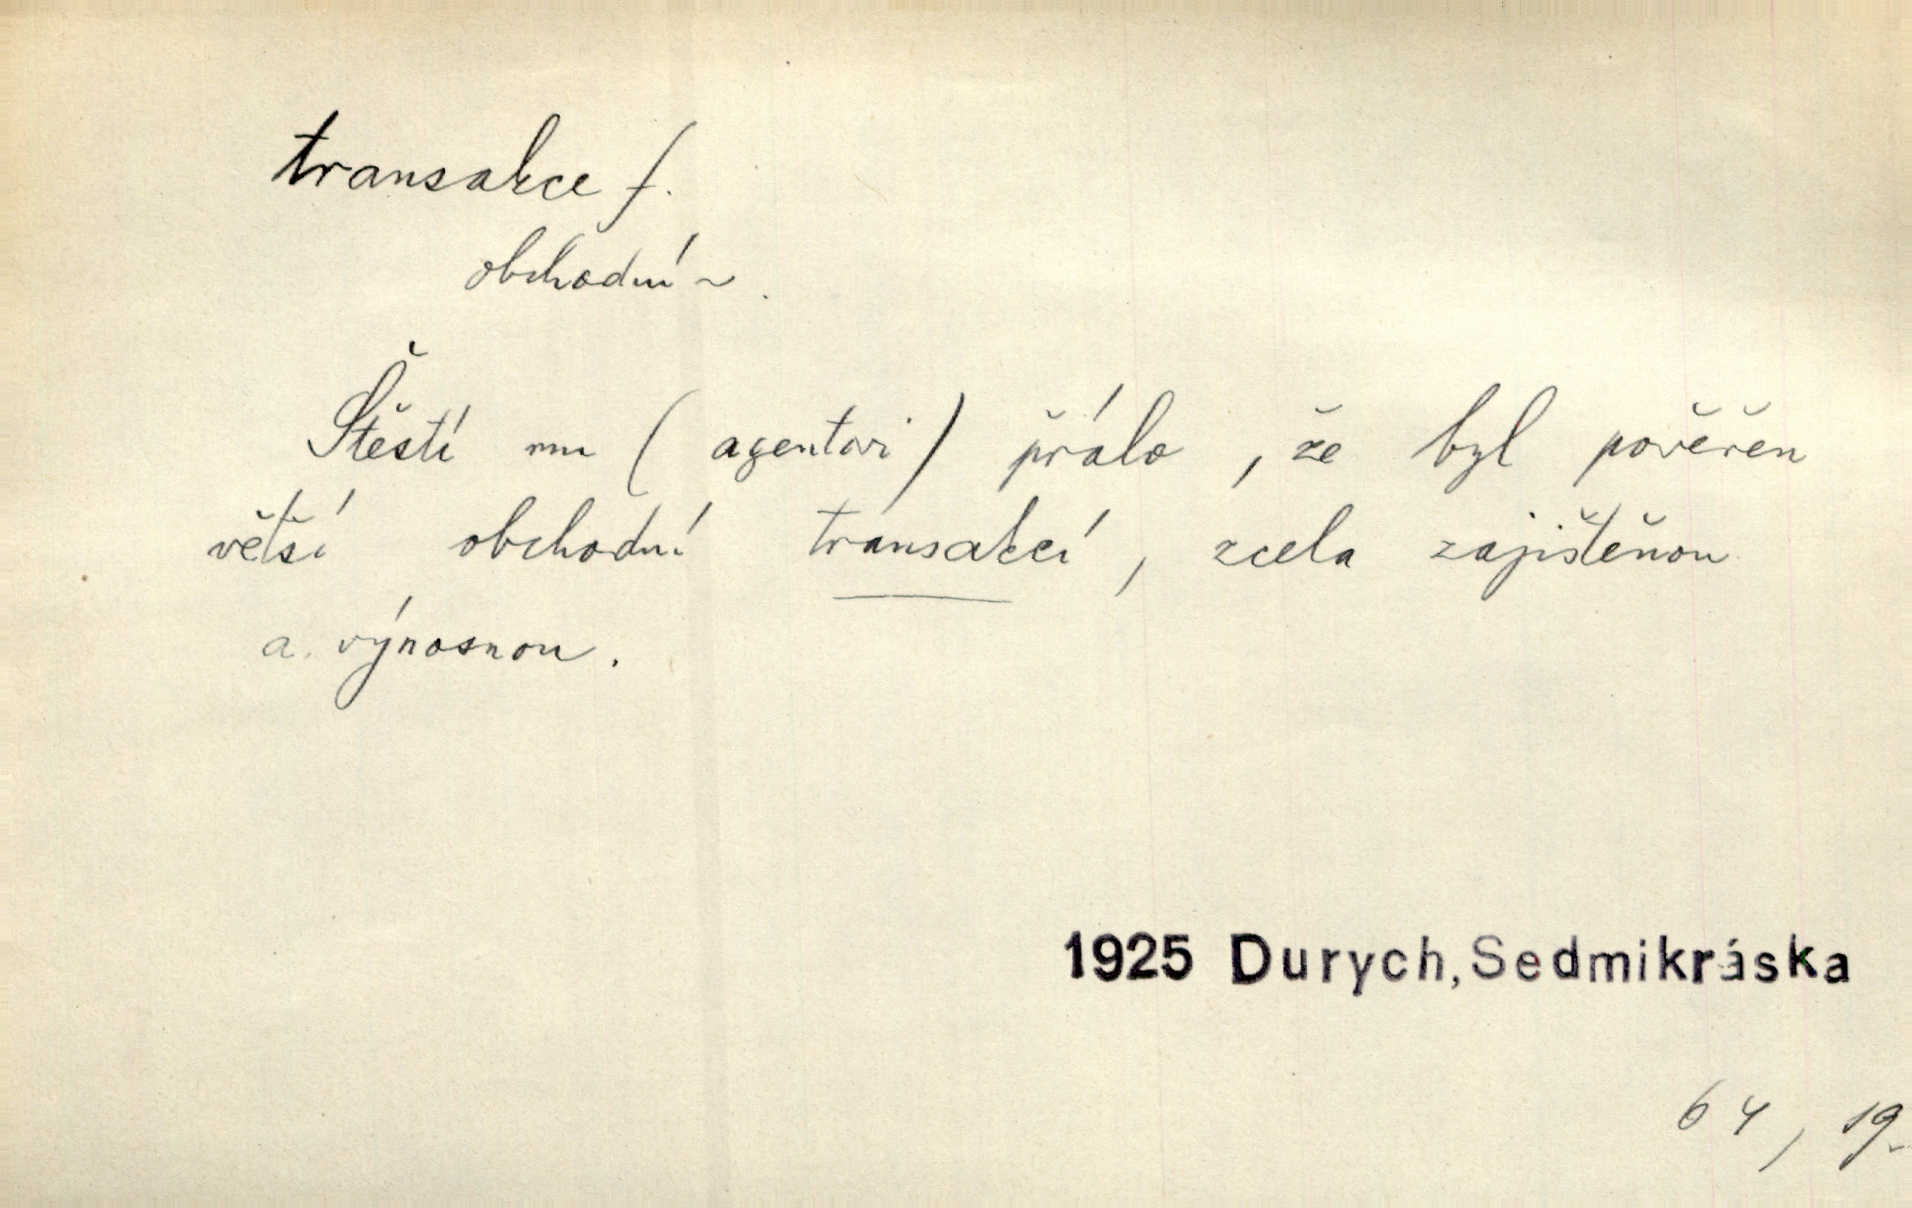 transakce f.
obchodní ~
Štěstí mu (agentovi) přálo, že byl pověřen
větší obchodní transakcí, zcela zajištěnou
a výnosnou.
1925 Durych, Sedmikráska
64, 19